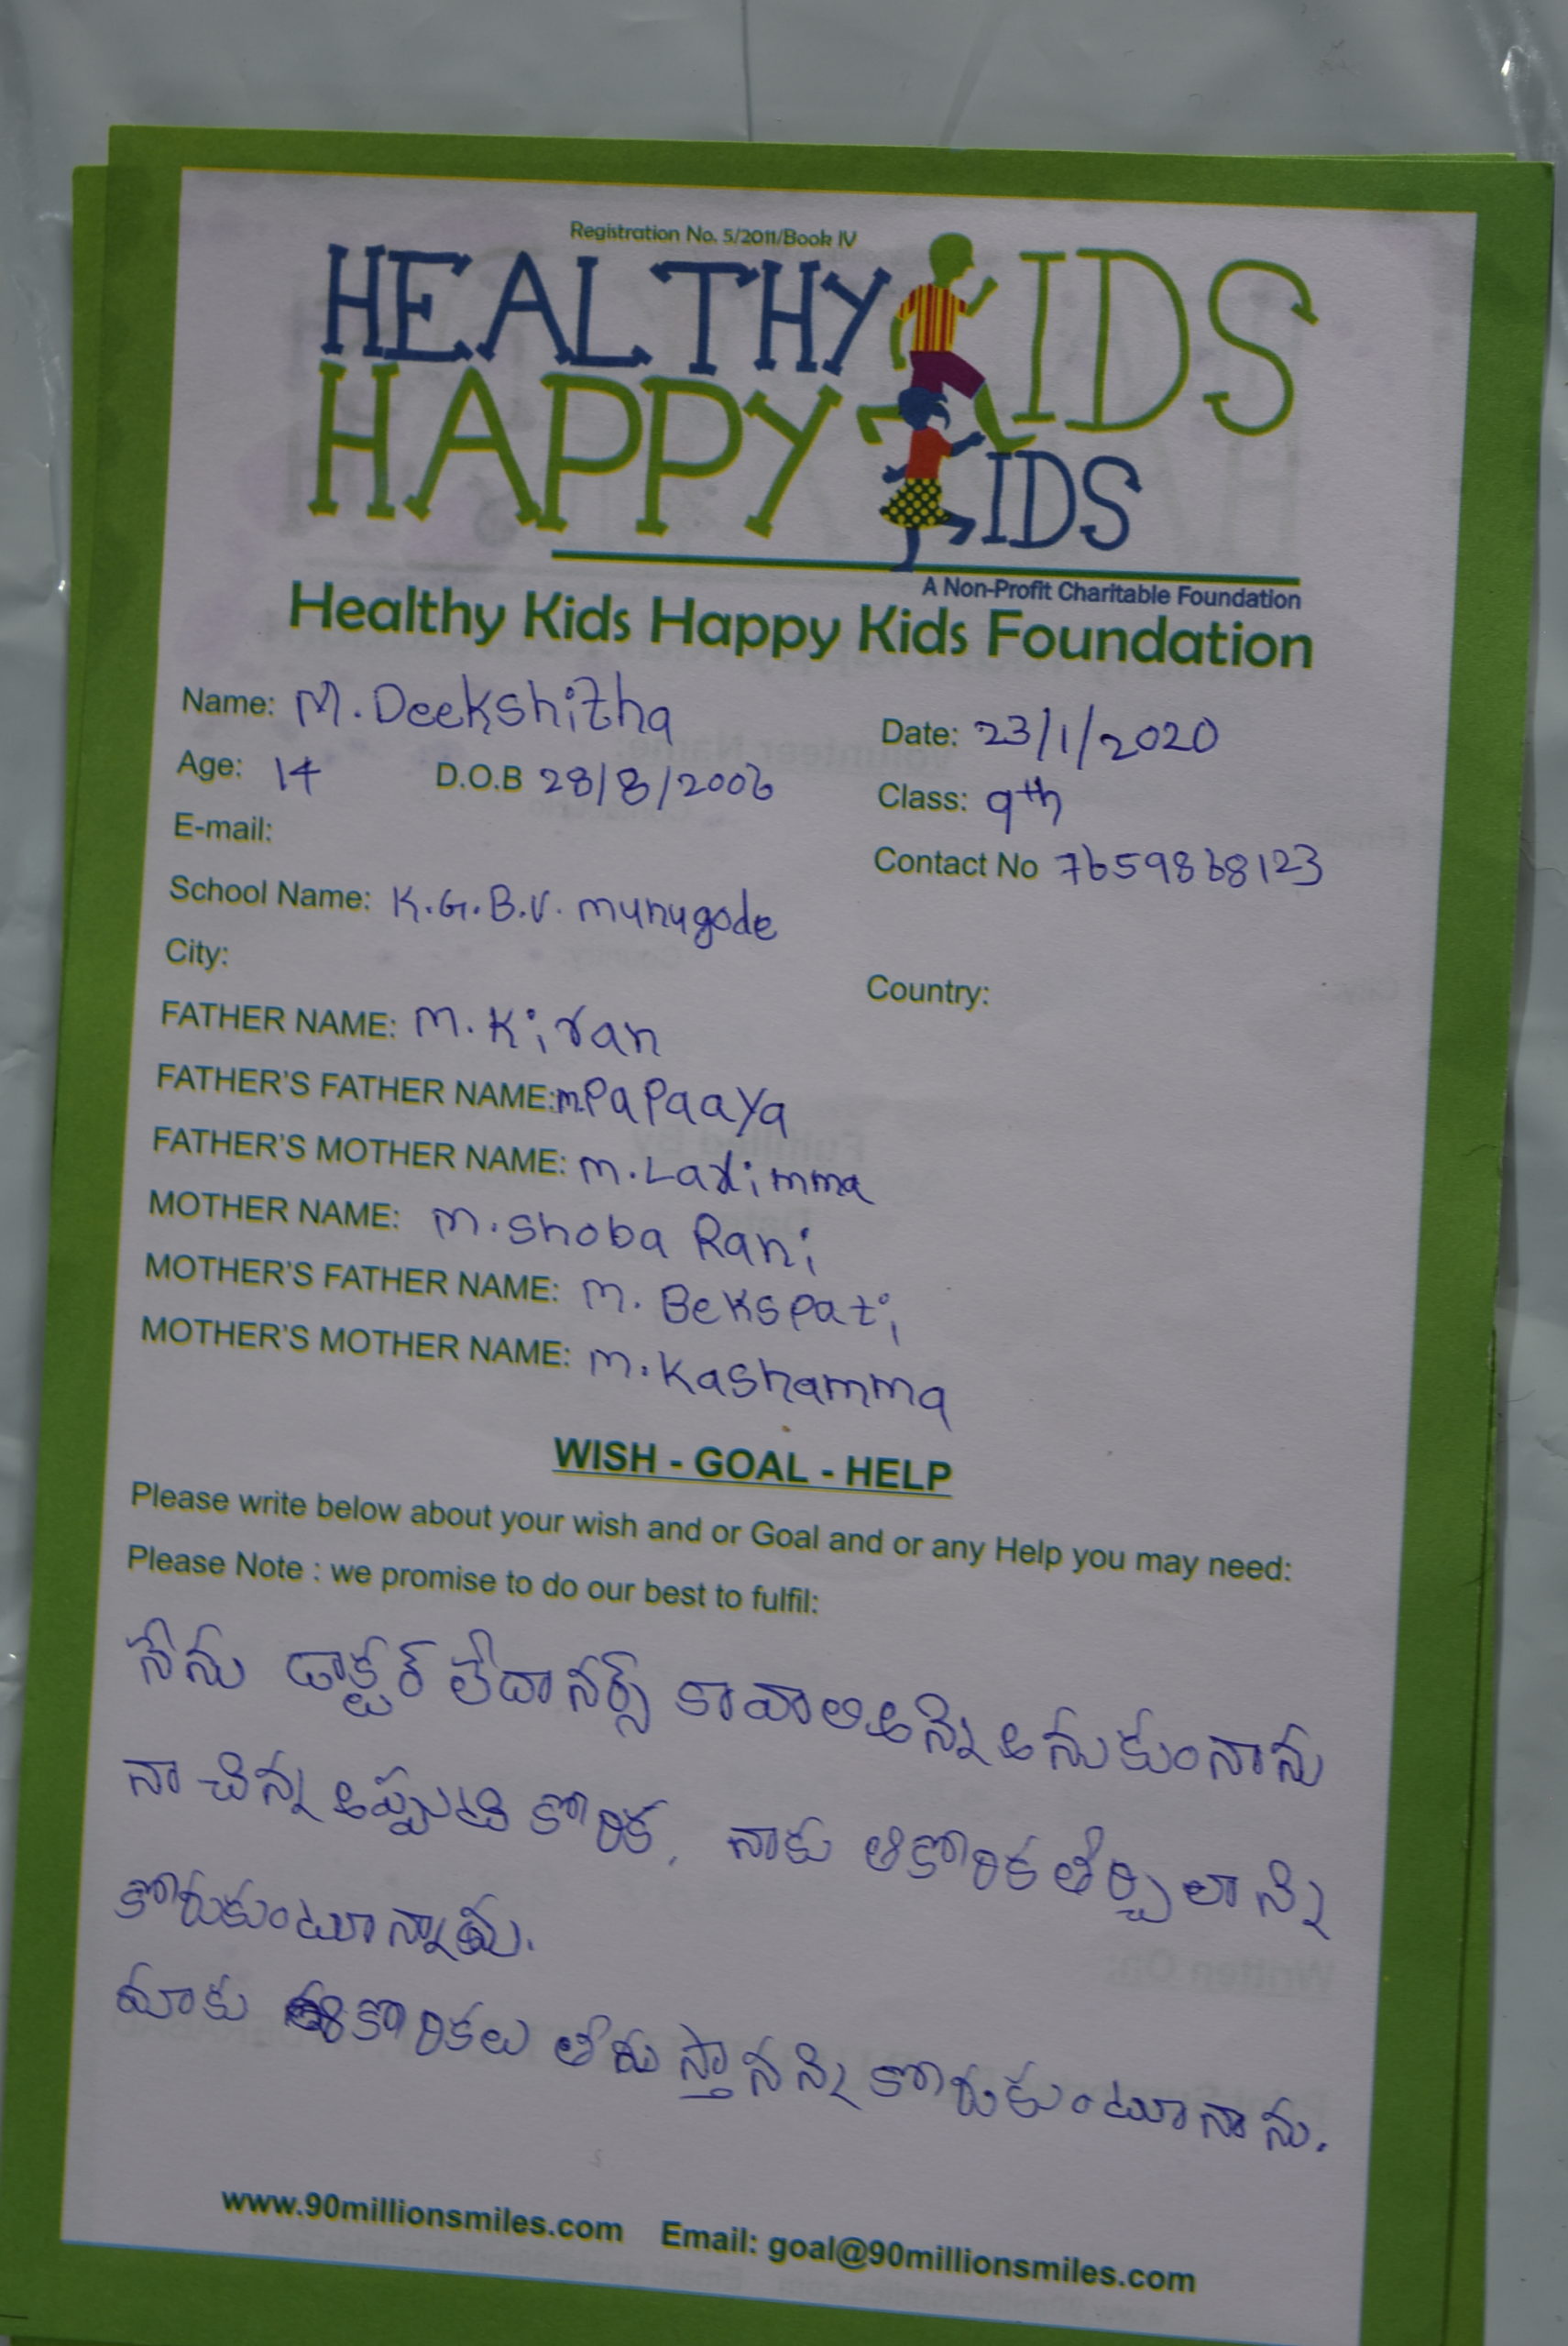 Registration No. 5/2011/Book IV
HEALTHY KIDS
HAPPY KIDS
A Non-Profit Charitable Foundation
Healthy Kids Happy Kids Foundation
Name: M. Deekshitha Date: 23/1/2020
Age: 14 D.O.B 28/8/2006 Class: 9th
E-mail: Contact No 7659868123
School Name: K.G.B.V. munugode
City: Country:
FATHER NAME: M. Kiran
FATHER'S FATHER NAME: m. Papaaya
FATHER'S MOTHER NAME: m. Laximma
MOTHER NAME: m. Shoba Rani
MOTHER'S FATHER NAME: m. Bekspati
MOTHER'S MOTHER NAME: m. Kashamma
WISH - GOAL - HELP
Please write below about your wish and or Goal and or any Help you may need:
Please Note : we promise to do our best to fulfil:
నేను డాక్టర్ లేదా నర్స్ కావాలి అన్ని అనుకుంనాను
నా చిన్న అప్పుటి కోరిక, నాకు ఆకోరిక తీర్చలాన్ని
కోరుకుంటూన్నాను.
మాకు ఈకోరికలు తీరుస్తానన్ని కోరుకుంటూనాను.
www.90millionsmiles.com Email: goal@90millionsmiles.com